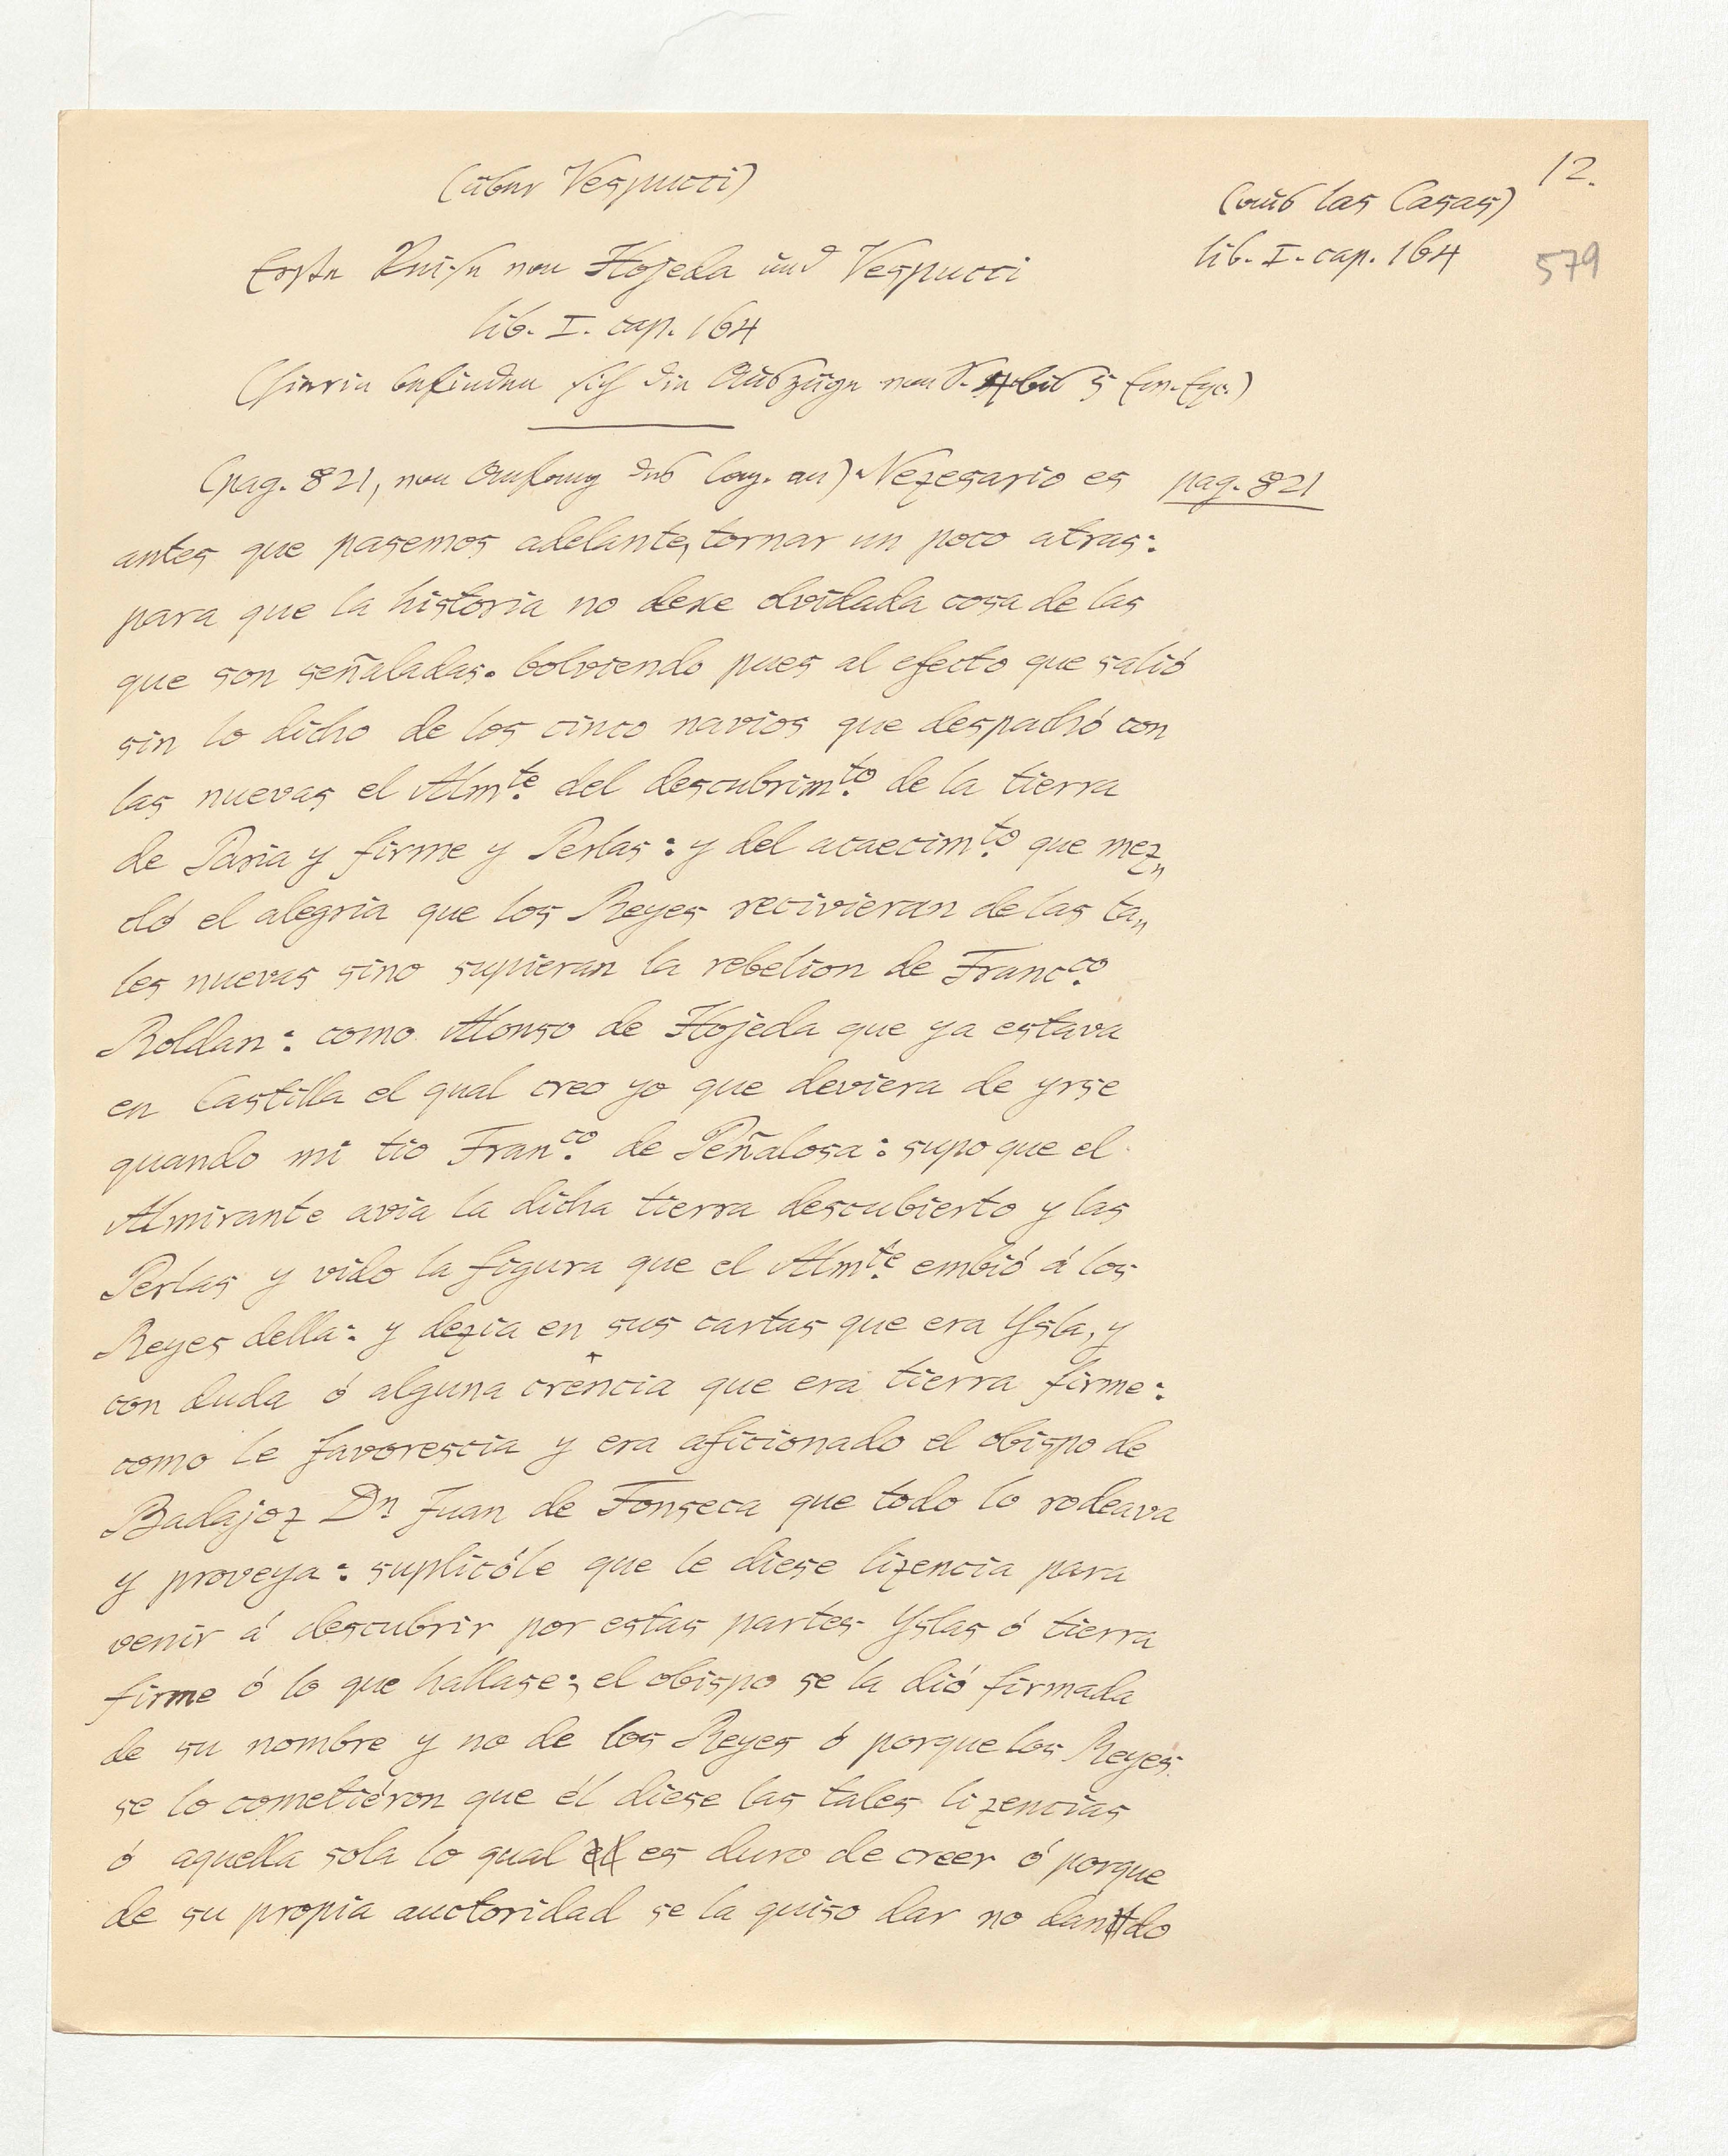 12.
(über Vespucci)
(aus las Casas)
lib. I. cap. 164
579
Erste Reise von Hojeda und Vespucci
lib. I. cap. 164
(hierin befinden sich die Auszüge von S. bis 5
(pag. 821, von Anfang des Cap. an) Nezesario es
pag. 821
antes que pasemos adelante, tornar un poco atras:
para que la historia no dexe olvidada cosa de las
que son señaladas. bolviendo pues al efecto que salió
sin lo dicho de los cinco navios que despachó con
las nuevas el Almte. del descubrimto. de la tierra
de Paria y firme y Perlas: y del acaecimto. que mez„
cló el alegria que los Reyes recivieran de las ta„
les nuevas sino supieran la rebelion de Francco.
Roldan: como Alonso de Hojeda que ya estava
en Castilla el qual creo yo que deviera de yrse
quando mi tio Franco. de Peñalosa: supo que el
Almirante avia la dicha tierra descubierto y las
Perlas y vido la figura que el Almte. embió á los
Reyes della: y dezia en sus cartas que era Ysla, y
con duda ó alguna crencia que era tierra firme:
como le favorescia y era aficionado el obispo de
Badajoz Dn Juan de Fonseca que todo lo rodeava
y proveya: suplicóle que le diese lizencia para
venir á descubrir por estas partes Yslas ó tierra
firme ó lo que hallase; el obispo se la dió firmada
de su nombre y no de los Reyes ó porque los Reyes
se lo cometiéron que él diese las tales lizencias
ó aquella sola lo qual es duro de creer ó porque
de su propia auctoridad se la quiso dar no dando